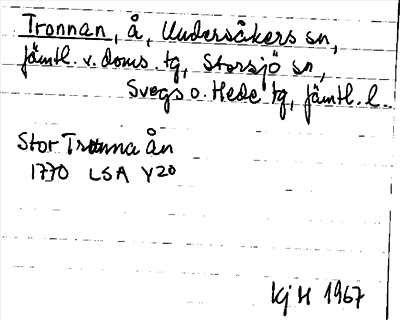 Tronnan, å, Undersåkers sn,
Jämtl. v. doms. tg, Storsjö sn,
Svegs o. Hede tg, Jämtl. l.
Stor Tronna ån
1770 LSA Y20
Kj H 1967